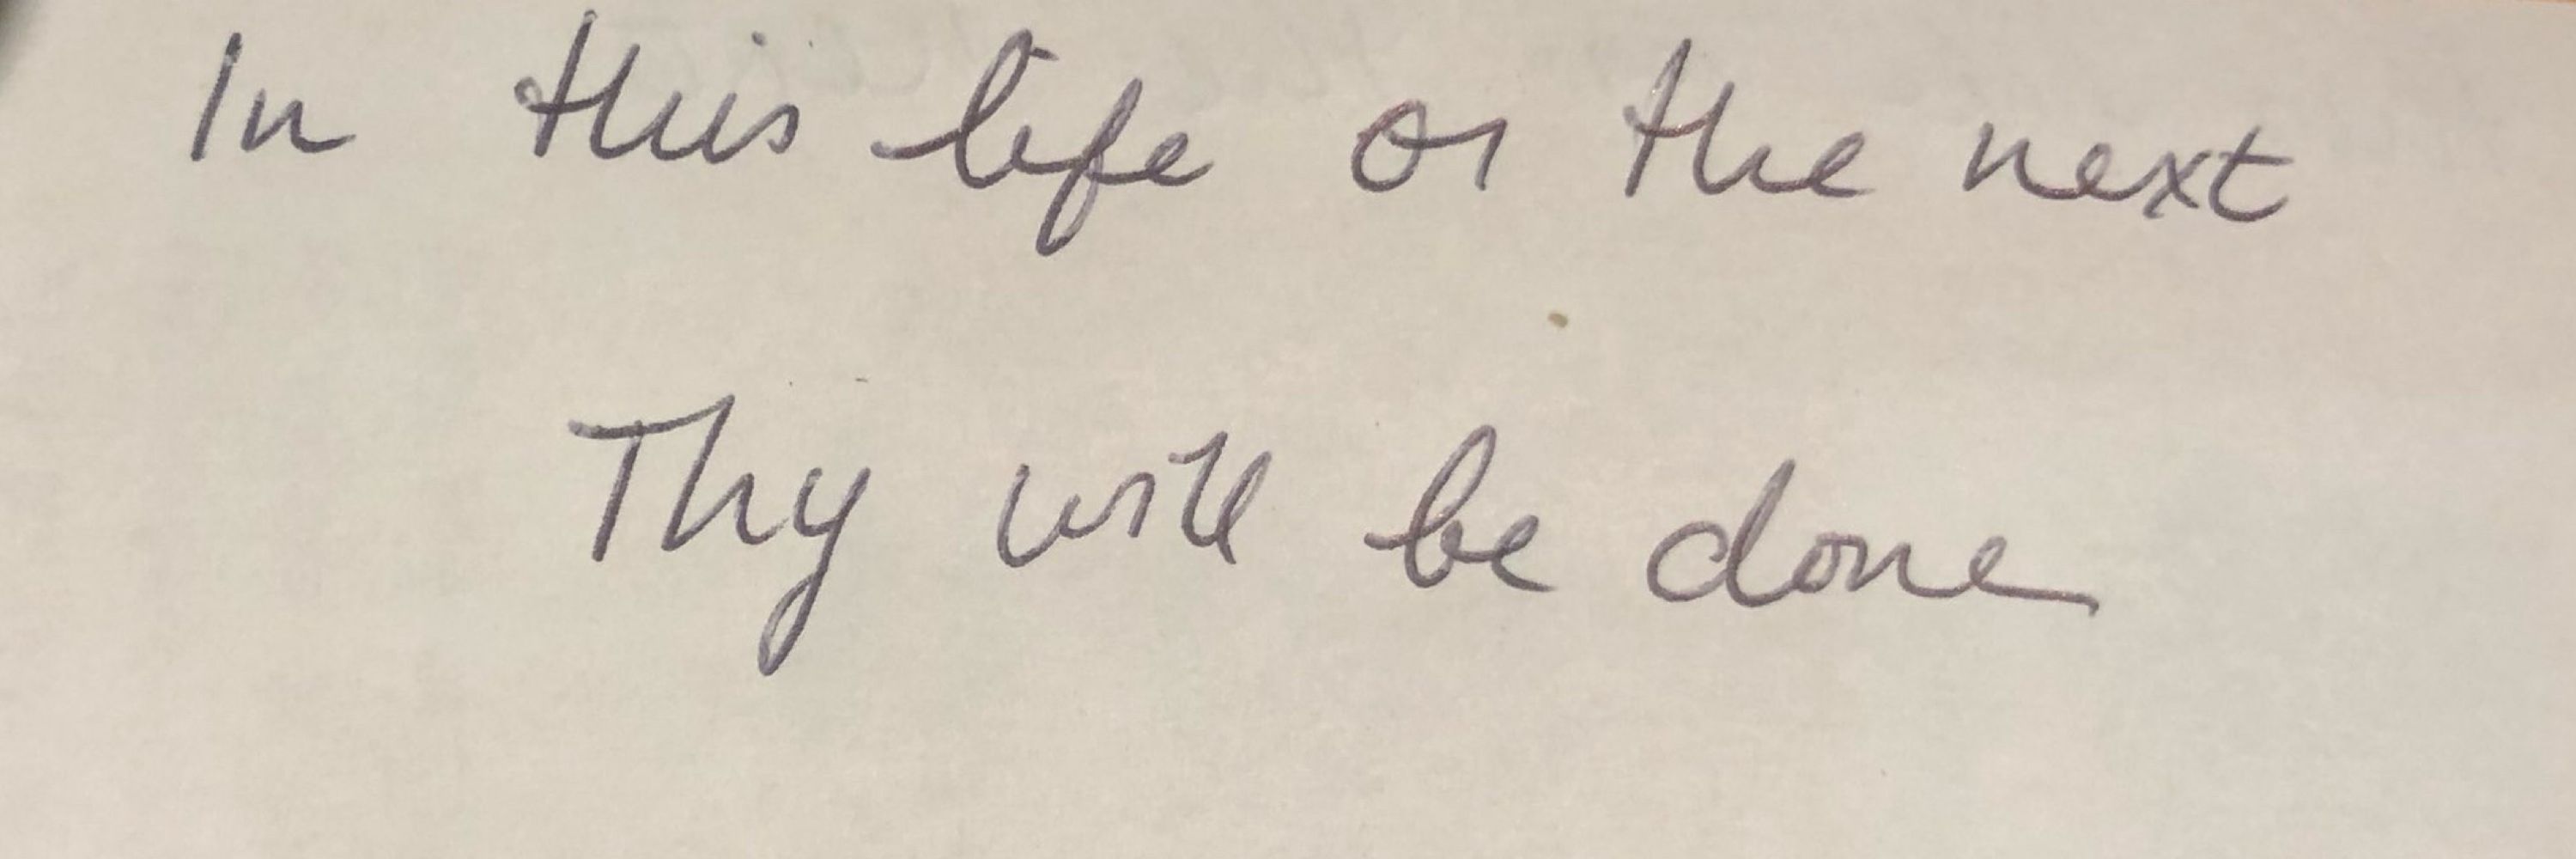 In this life or the next
Thy will be done